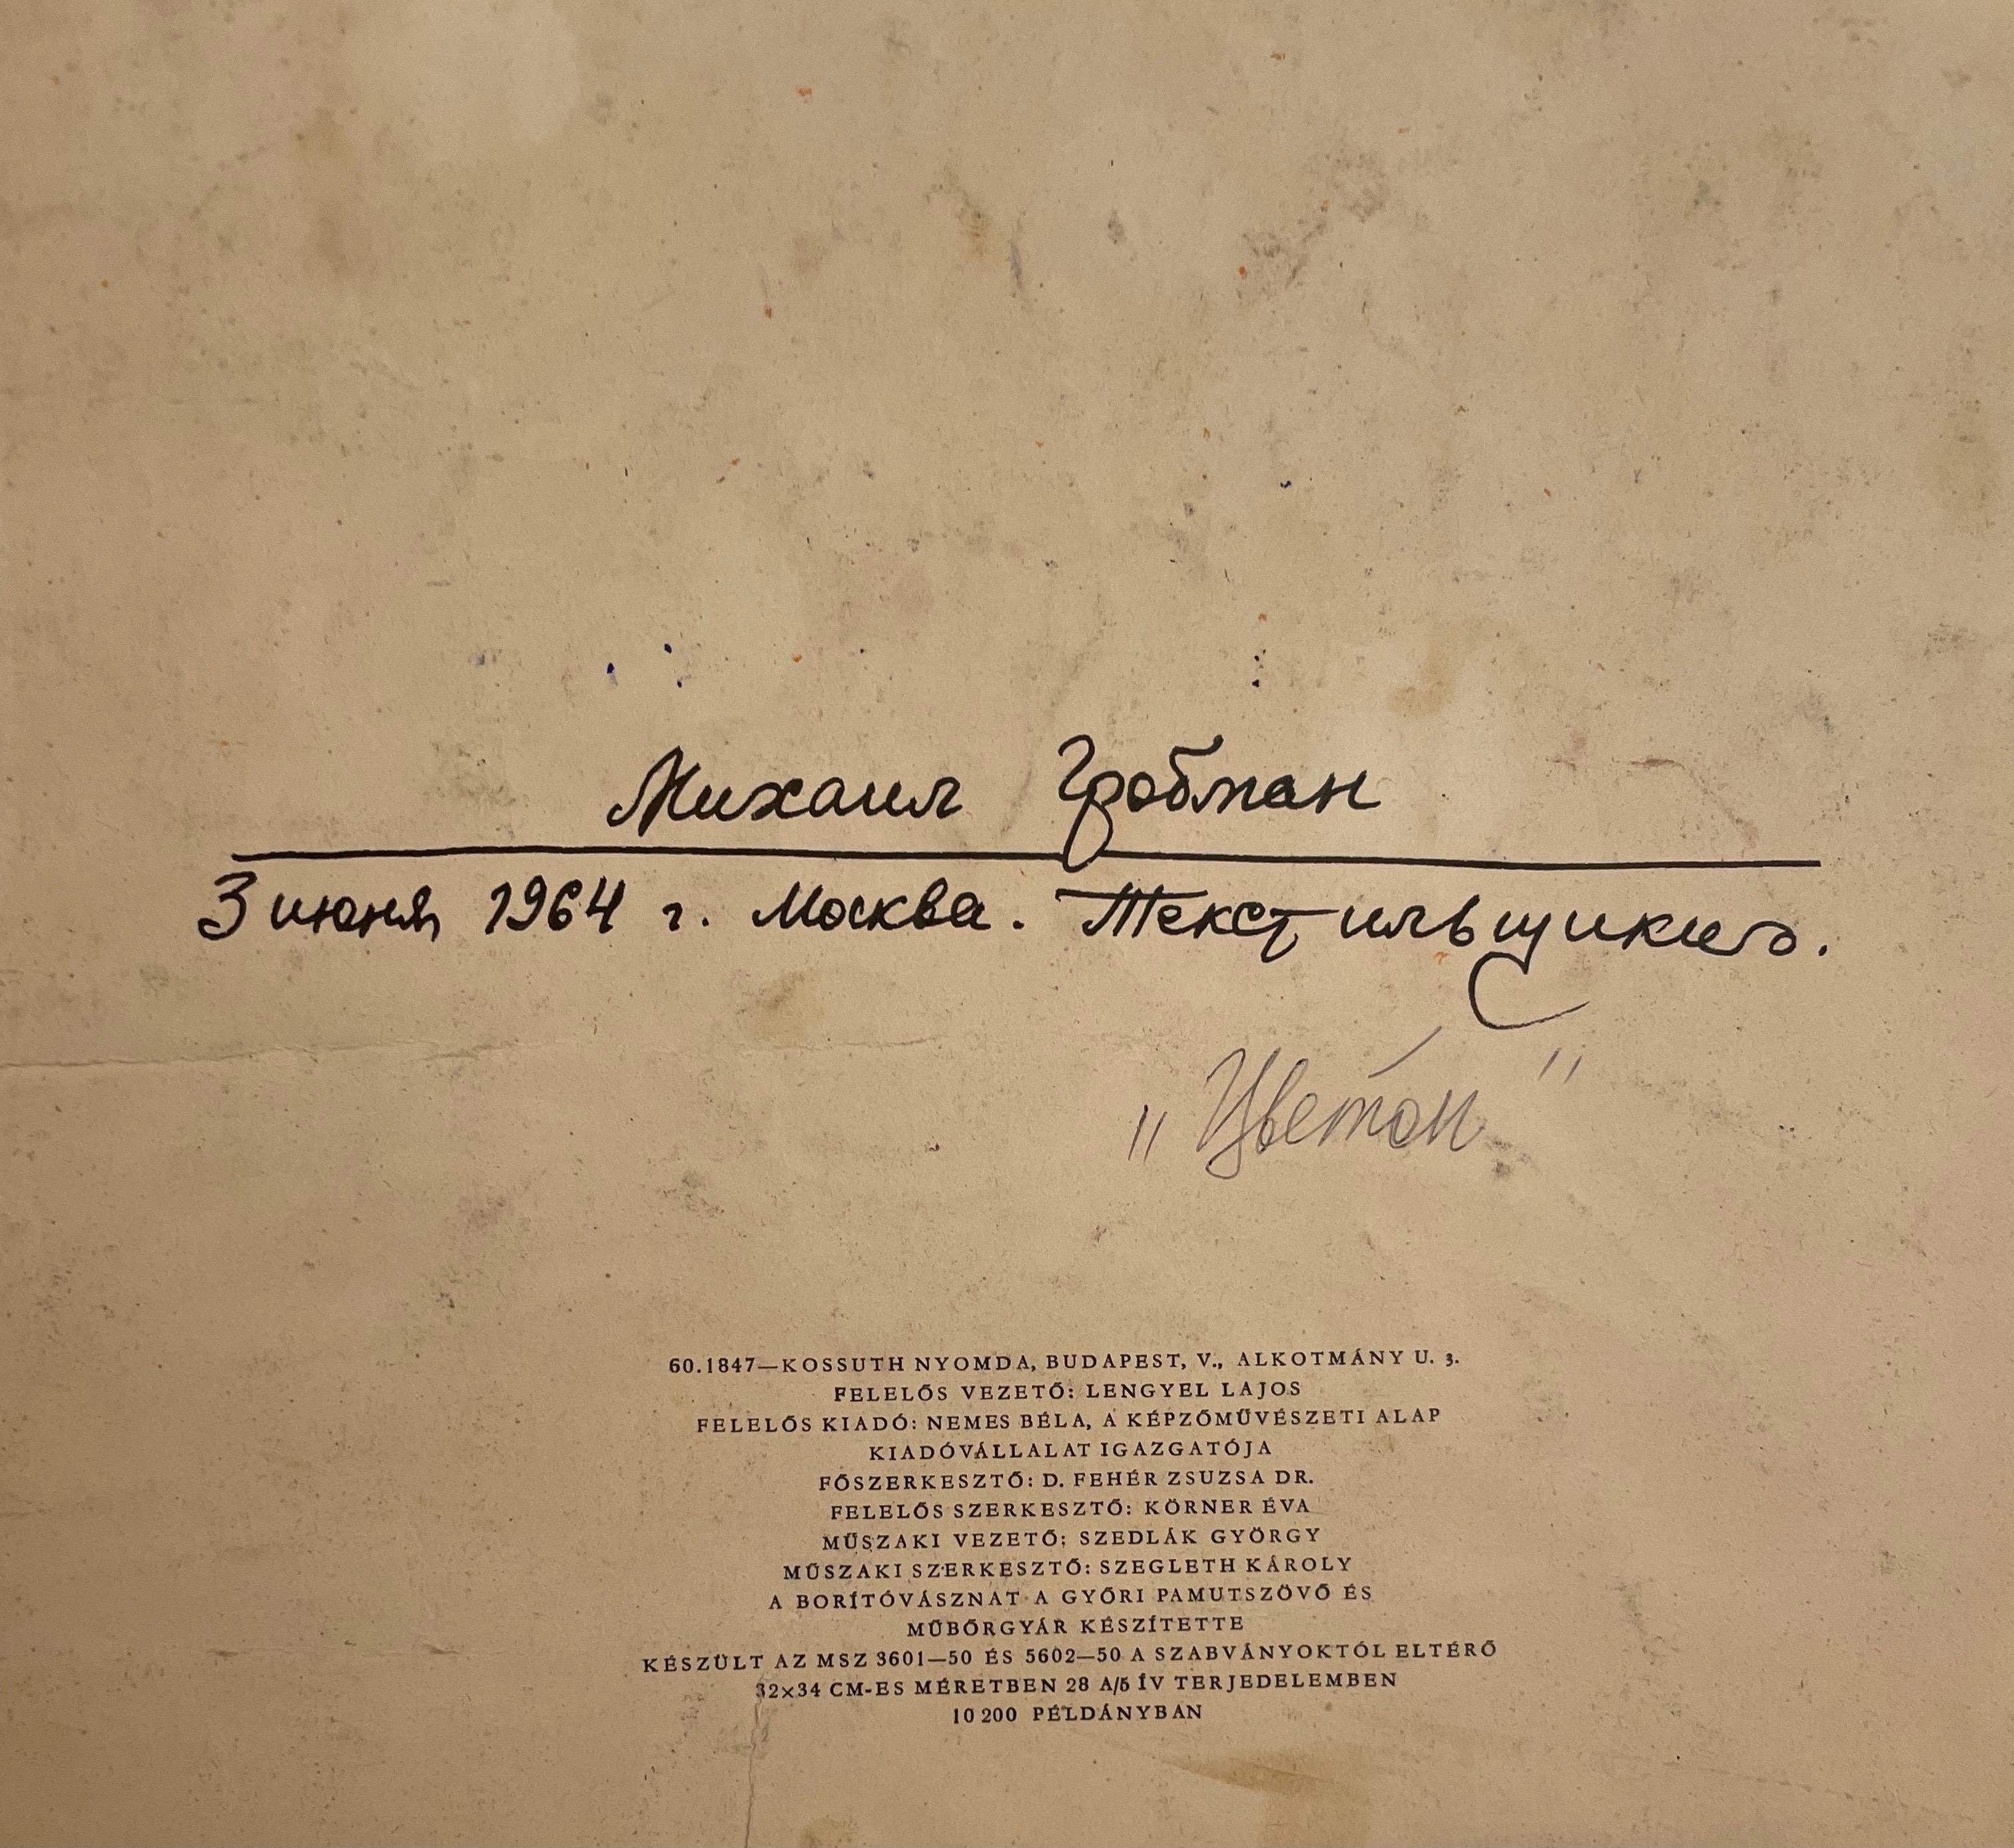 Михаил Гробман
3 июня 1964 г. Москва. Текстильщики.
„Цветы"
60.1847—KOSSUTH NYOMDA, BUDAPEST, V., ALKOTMÁNY U. 3.
FELELŐS VEZETŐ: LENGYEL LAJOS
FELELŐS KIADÓ: NEMES BÉLA, A KÉPZŐMŰVÉSZETI ALAP
KIADÓVÁLLALAT IGAZGATÓJA
FŐSZERKESZTŐ: D. FEHÉR ZSUZSA DR.
FELELŐS SZERKESZTŐ: KÖRNER ÉVA
MŰSZAKI VEZETŐ: SZEDLÁK GYÖRGY
MŰSZAKI SZERKESZTŐ: SZEGLETH KÁROLY
A BORÍTÓVÁSZNAT A GYŐRI PAMUTSZÖVŐ ÉS
MŰBŐRGYÁR KÉSZÍTETTE
KÉSZÜLT AZ MSZ 3601—50 ÉS 5602—50 A SZABVÁNYOKTÓL ELTÉRŐ
32×34 CM-ES MÉRETBEN 28 A/5 ÍV TERJEDELEMBEN
10 200 PÉLDÁNYBAN